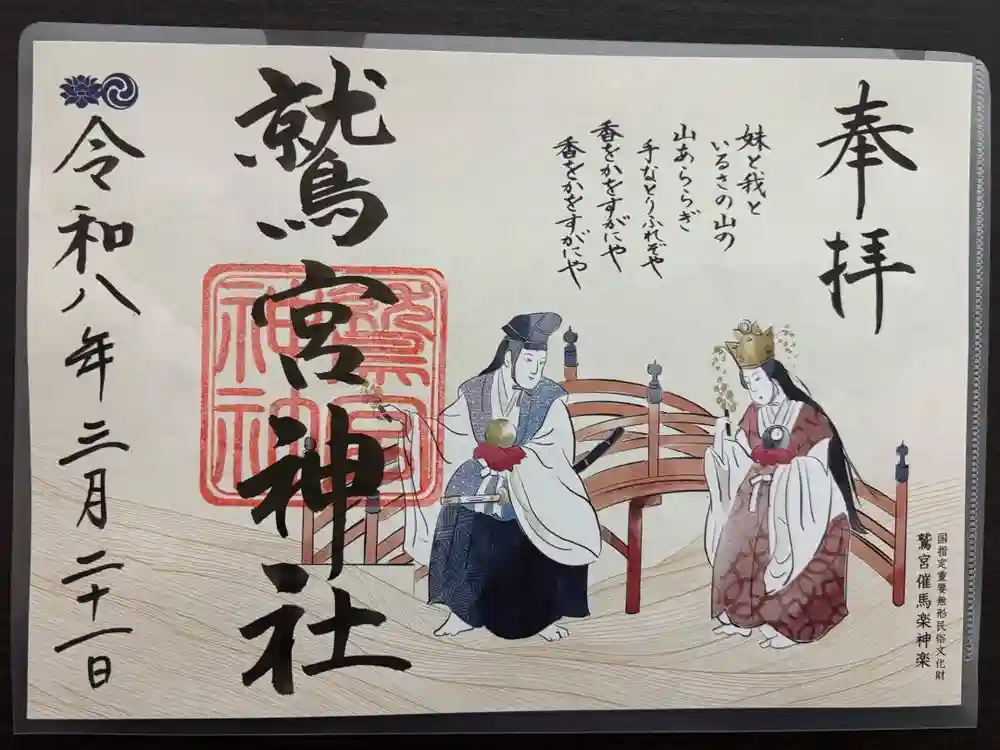 奉拝
妹と我と
いるさの山の
山あららぎ
手なとりふれぞや
香をかをすがにや
香をかをすがにや
鷲宮神社
鷲宮
神社
令和八年三月二十一日
国指定重要無形民俗文化財
鷲宮催馬楽神楽